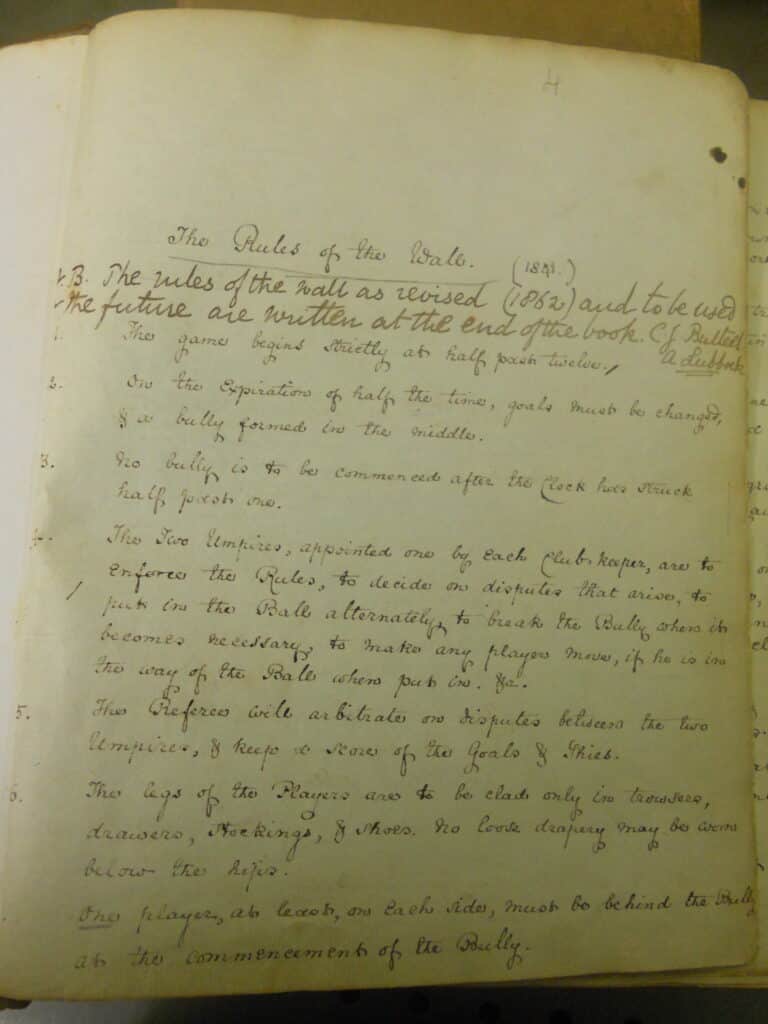 4
The Rules of the Wall. (1841.)
N.B. The rules of the wall as revised (1862) and to be used
the future are written at the end of the book. C. J.
1. The game begins strictly at half past twelve.
A Lubbock
2. On the Expiration of half the time, goals must be changed,
& a bully formed in the middle.
3. No bully is to be commenced after the Clock has struck
half past one.
4. The Two Umpires, appointed one by each Club-keeper, are to
enforce the Rules, to decide on disputes that arise, to
put in the Ball alternately, to break the Bully when it
becomes necessary, to make any player move, if he is in
the way of the Ball when put in. &c.
5. The Referee will arbitrate on disputes between the two
Umpires, & keep a score of the Goals & Shies.
6. The legs of the Players are to be clad only in trowsers,
drawers, Stockings, & shoes. No loose drapery may be worn
below the hips.
One player, at least, on each side, must be behind the Bully
at the commencement of the Bully.